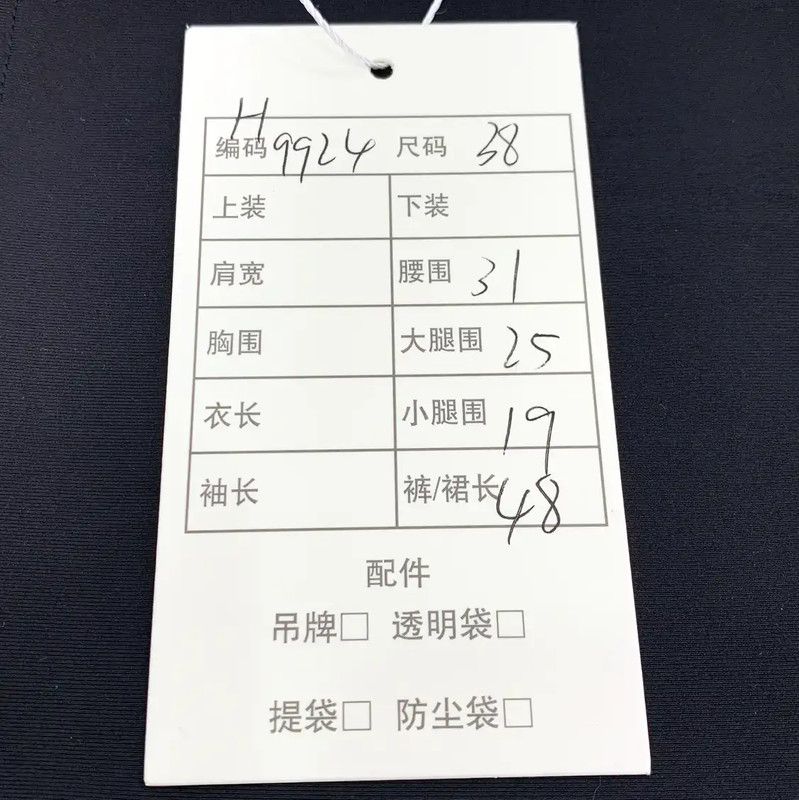 编码 H9924 尺码 38
上装 下装
肩宽 腰围 31
胸围 大腿围 25
衣长 小腿围 19
袖长 裤/裙长 48
配件
吊牌□ 透明袋□
提袋□ 防尘袋□